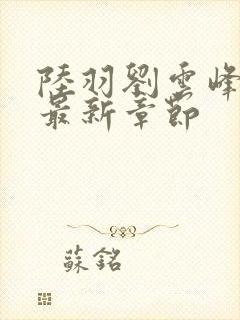 陸羽劉雲峰
最新章節
蘇銘